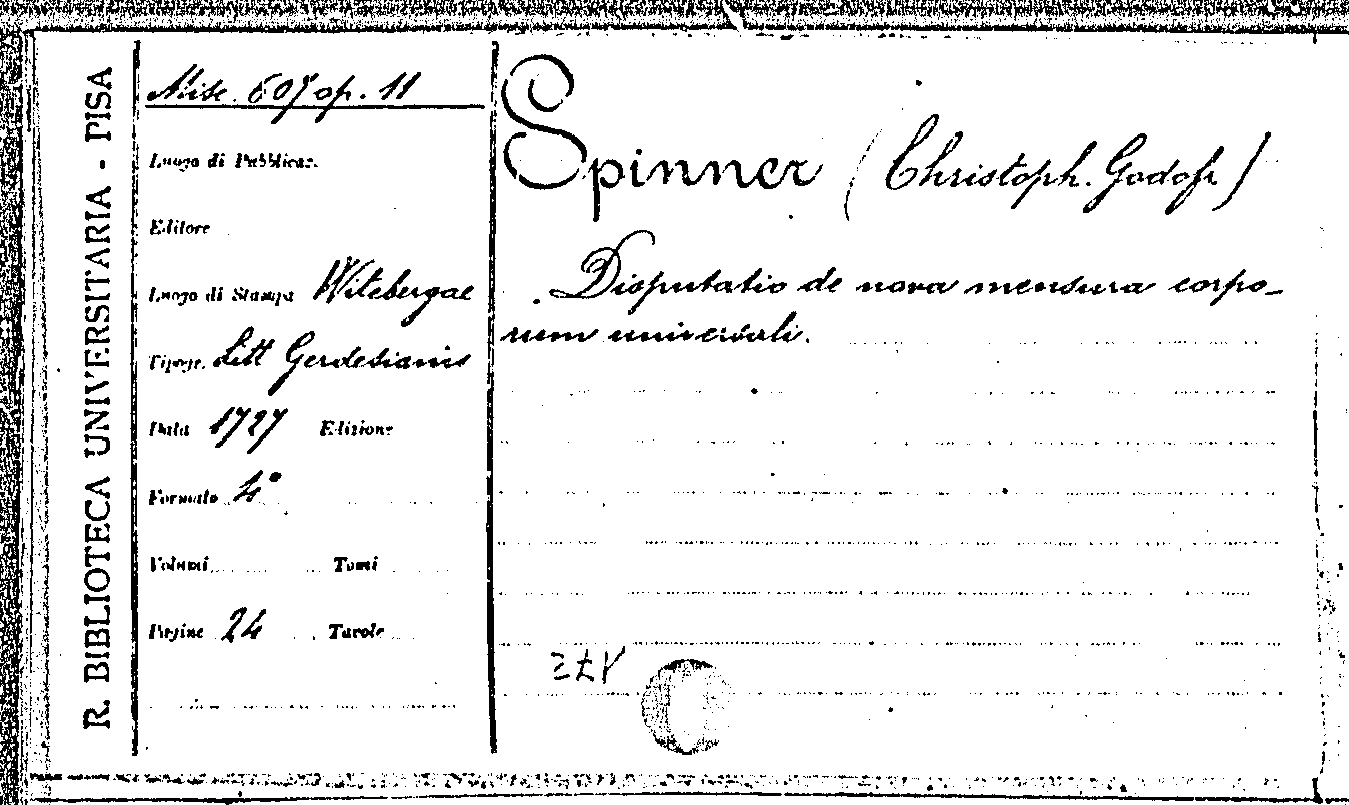 R. BIBLIOTECA UNIVERSITARIA - PISA
Misc. 607 op. 11
Luogo di Pubblicaz.
Editore
Luogo di Stampa Witebergae
Tipogr. Litt Gerdesianis
Data 1727 Edizione
Formato 4°
Volumi Tomi
Pagine 24 Tavole
Spinner (Christoph. Godofr)
Disputatio de nova mensura corpo-
rum universali.